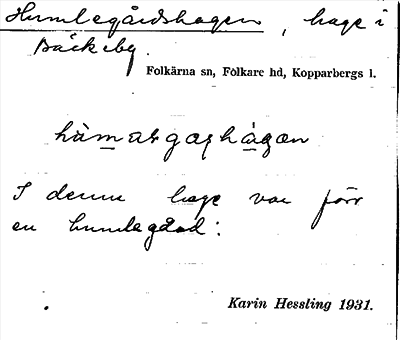 Humlegårdshagen, hage i
Bäckeby.
Folkärna sn, Folkare hd, Kopparbergs l.
I denna hage var förr
en humlegård.
Karin Hessling 1931.